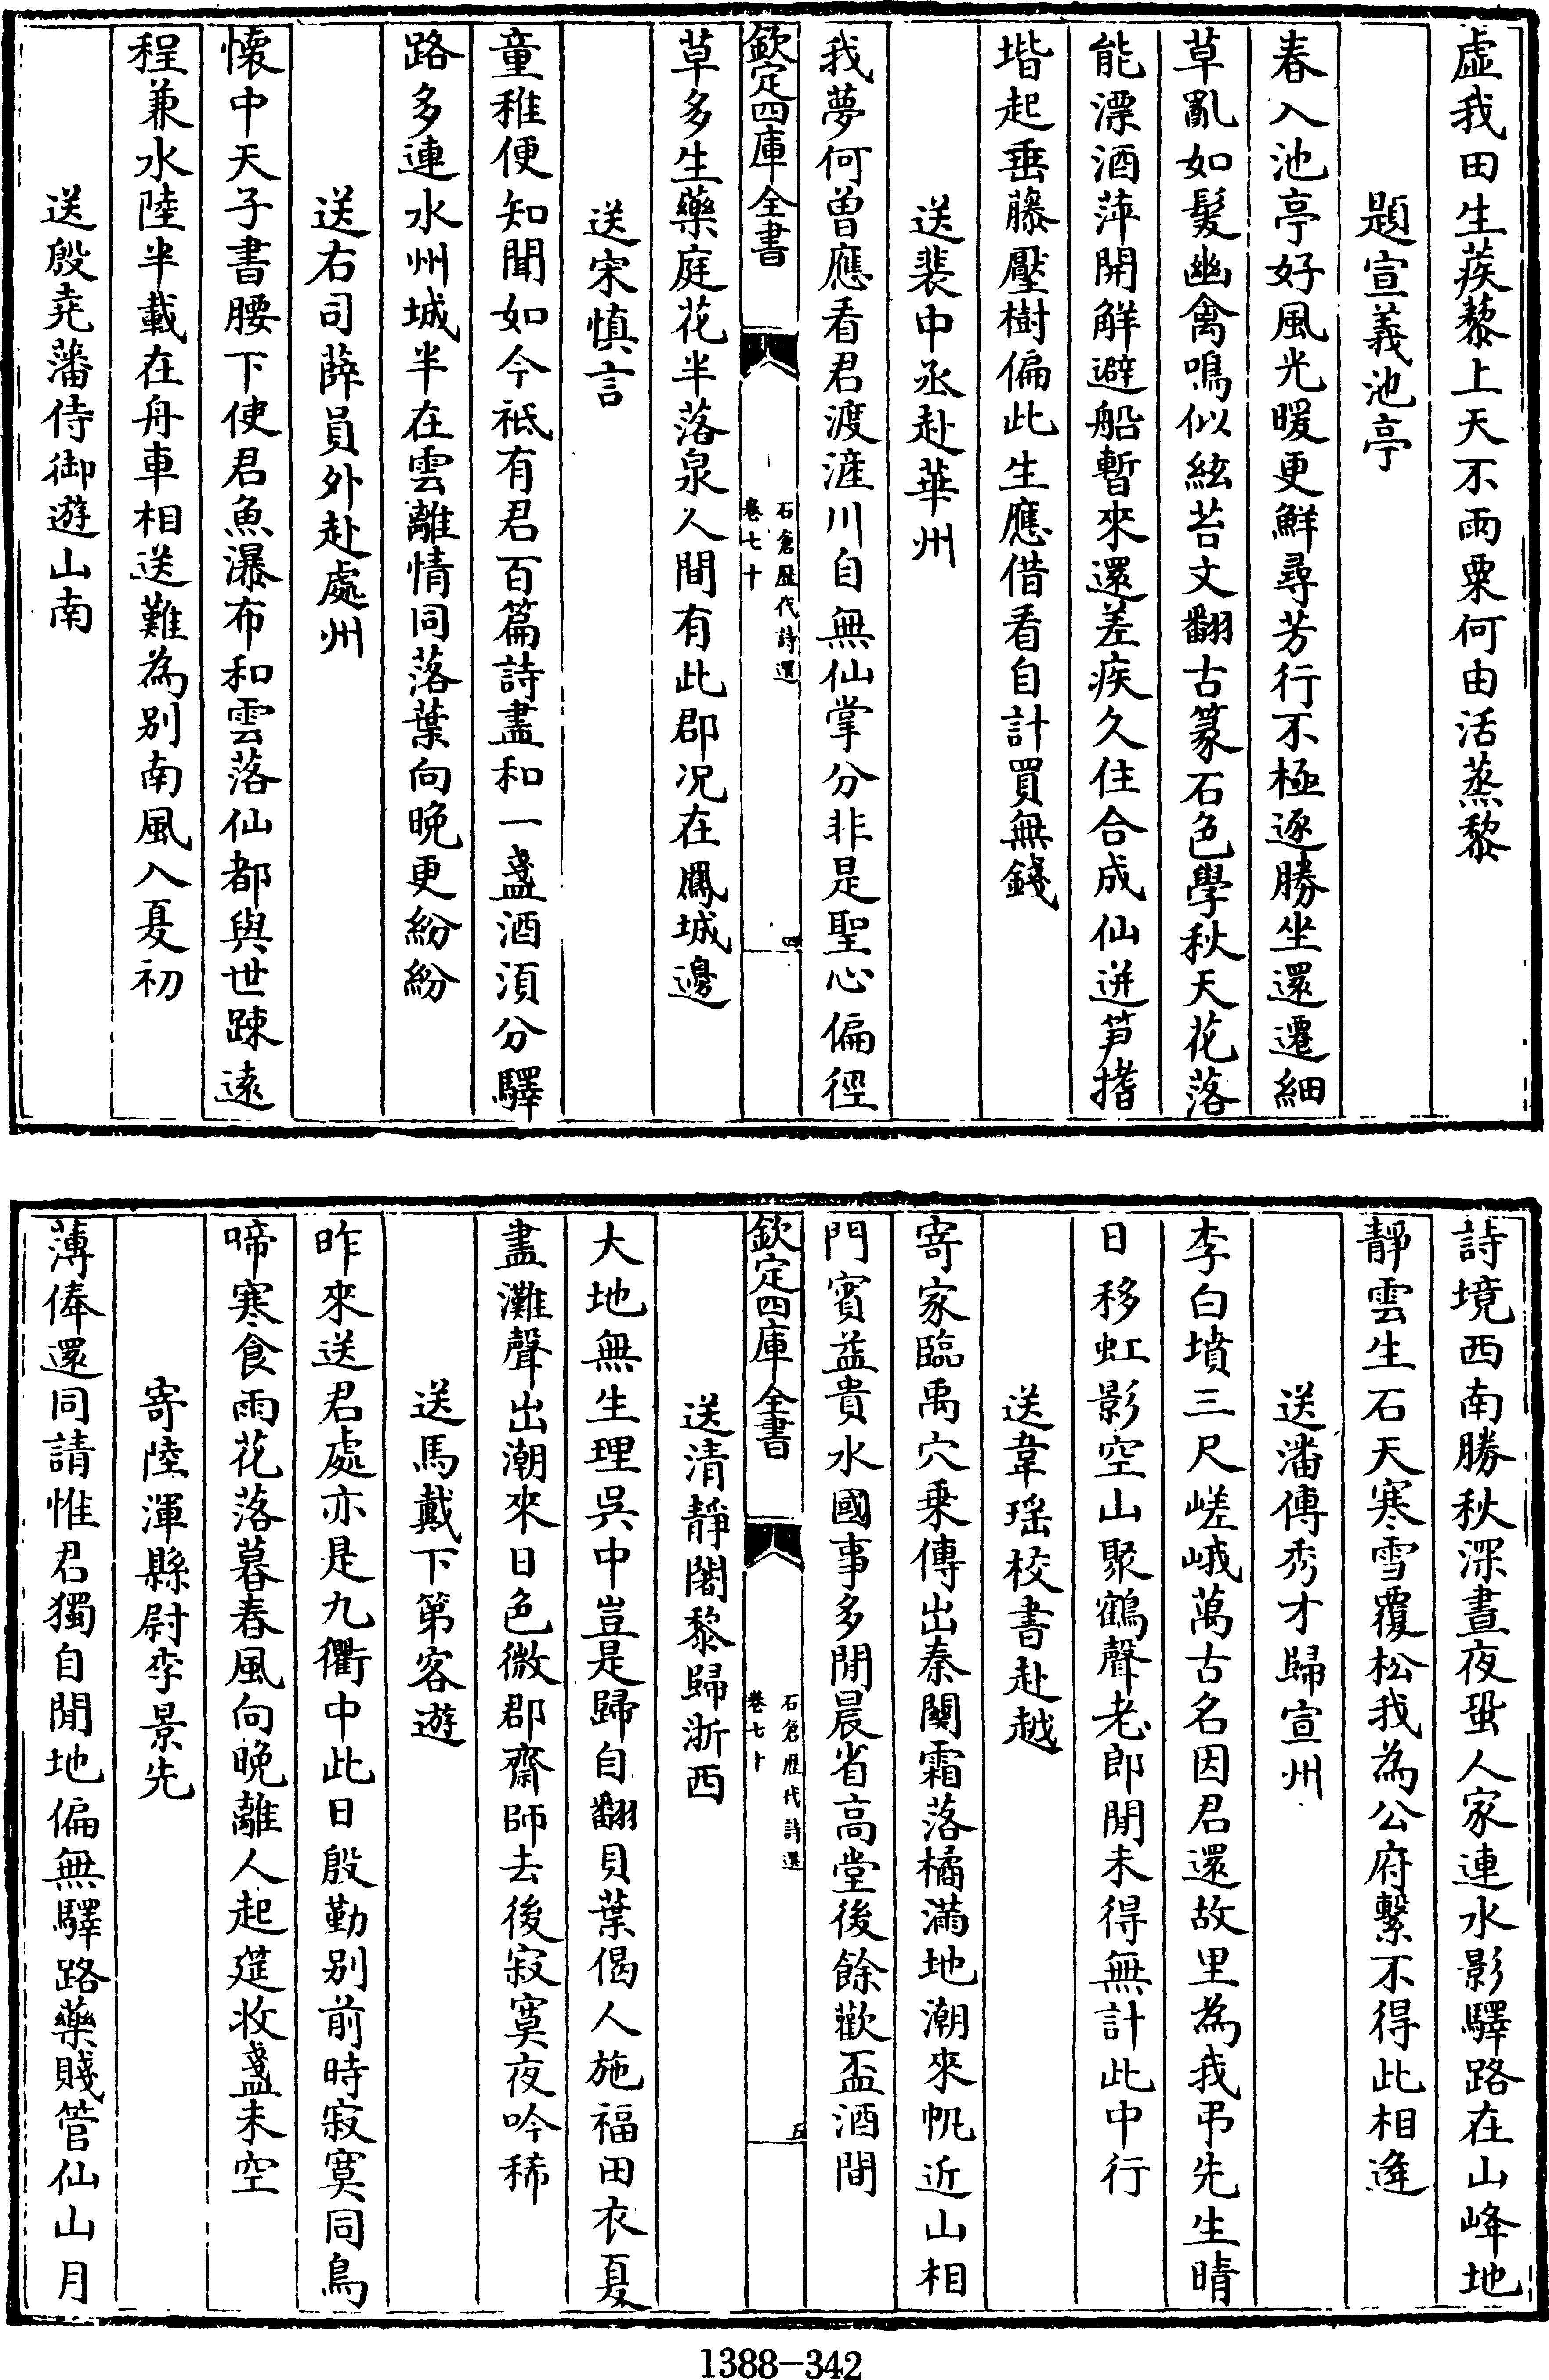 虛我田生蒺藜上天不雨粟何由活蒸黎
題宣義池亭
春入池亭好風光暖更鮮尋芳行不極逐勝坐還遷細
草亂如髮幽禽鳴似絃苔文翻古篆石色學秋天花落
能漂酒萍開解避船暫來還差疾久住合成仙迸笋揩
堦起垂藤壓樹偏此生應借看自計買無錢
送裴中丞赴華州
我夢何曽應看君渡滻川自無仙掌分非是聖心偏徑
欽定四庫全書
石倉歷代詩選
卷七十
四
草多生藥庭花半落泉人間有此郡况在鳳城邊
送宋慎言
童稚便知聞如今祗有君百篇詩盡和一盞酒湏分驛
路多連水州城半在雲離情同落葉向晚更紛紛
送右司薛員外赴處州
懷中天子書腰下使君魚瀑布和雲落仙都與世踈逺
程兼水陸半載在舟車相送難為別南風入夏初
送殷堯藩侍御遊山南
詩境西南勝秋深晝夜蛩人家連水影驛路在山峰地
靜雲生石天寒雪覆松我為公府繫不得此相逢
送潘傳秀才歸宣州
李白墳三尺嵯峨萬古名因君還故里為我弔先生晴
日移虹影空山聚鶴聲老郎閒未得無計此中行
送韋瑶校書赴越
寄家臨禹穴乗傳出秦關霜落橘滿地潮來帆近山相
門賓益貴水國事多閒晨省高堂後餘歡盃酒間
欽定四庫全書
石倉歷代詩選
卷七十
五
送清靜闍黎歸浙西
大地無生理吳中豈是歸自翻貝葉偈人施福田衣夏
盡灘聲出潮來日色微郡齋師去後寂寞夜吟稀
送馬戴下第客遊
昨來送君處亦是九衢中此日殷勤別前時寂寞同鳥
啼寒食雨花落暮春風向晚離人起筵收盞未空
寄陸渾縣尉李景先
薄俸還同請惟君獨自閒地偏無驛路藥賤管仙山月
1388-342